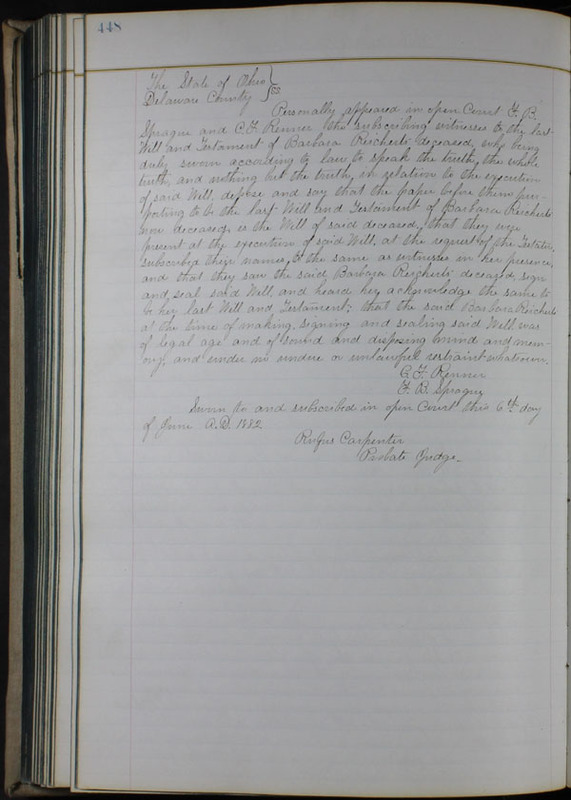 448
The State of Ohio }
Delaware County } SS
Personally appeared in open Court F. B.
Sprague and C. F. Renner the subscribing witnesses to the last
Will and Testament of Barbara Reicherts deceased, who being
duly sworn according to law to speak the truth, the whole
truth, and nothing but the truth, in relation to the execution
of said Will, depose and say that the paper before them pur-
porting to be the last Will and Testament of Barbara Reicherts
now deceased, is the Will of said deceased, that they were
present at the execution of said Will, at the request of the Testator,
subscribed their names to the same as witnesses in her presence,
and that they saw the said Barbara Reicherts deceased, sign
and seal said Will, and heard her acknowledge the same to
be her last Will and Testament; that the said Barbara Reicherts
at the time of making, signing and sealing said Will was
of legal age and of sound and disposing mind and mem-
ory, and under no undue or unlawful restraint whatsoever.
C. F. Renner
F. B. Sprague
Sworn to and subscribed in open Court this 6th day
of June A.D. 1882
Rufus Carpenter
Probate Judge.